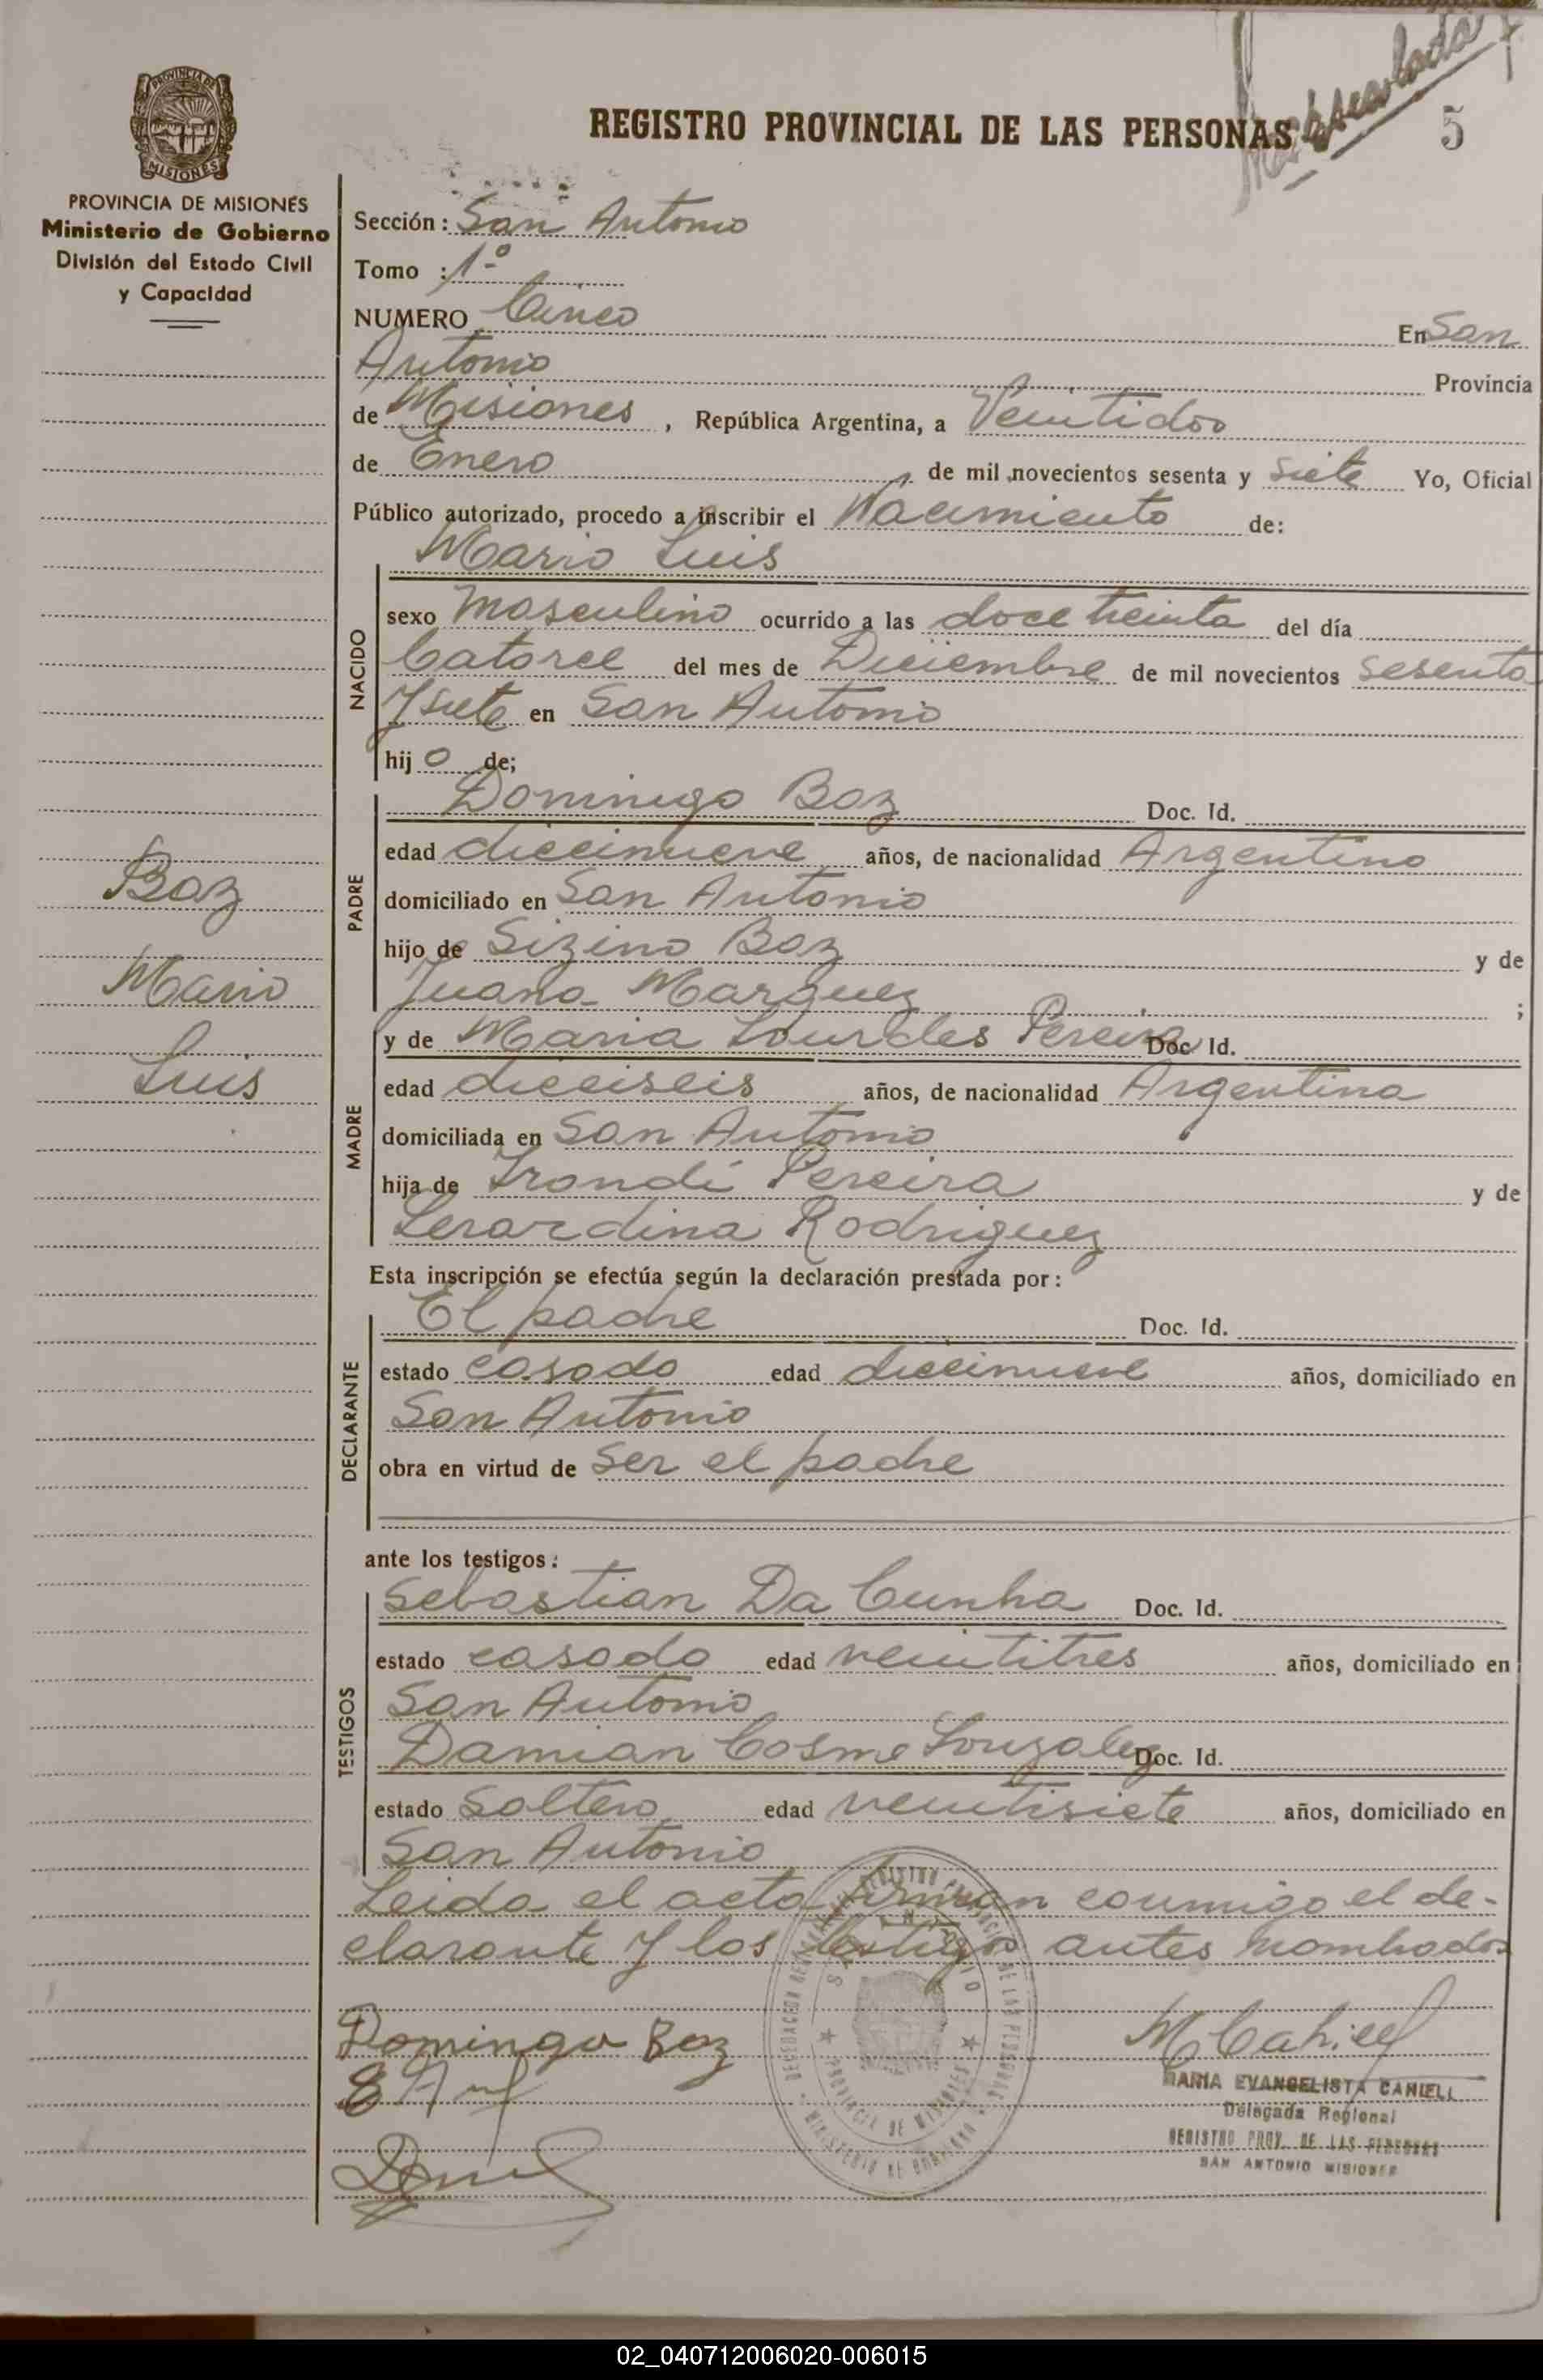 REGISTRO PROVINCIAL DE LAS PERSONAS
5
PROVINCIA DE MISIONES
PROVINCIA DE MISIONES
Ministerio de Gobierno
División del Estado Civil
y Capacidad
Sección: San Antonio
Tomo : 1º
NUMERO Cinco En San
Antonio Provincia
de Misiones, República Argentina, a Veintidos
de Enero de mil novecientos sesenta y siete Yo, Oficial
Público autorizado, procedo a inscribir el Nacimiento de:
Mario Luis
NACIDO
sexo Masculino ocurrido a las doce treinta del día
Catorce del mes de Diciembre de mil novecientos sesenta
y siete en San Antonio
hijo de;
PADRE
Domingo Boz Doc. Id.
edad diecinueve años, de nacionalidad Argentino
domiciliado en San Antonio
hijo de Sizino Boz y de
Juana Marquez ;
Boz
Mario
Luis
MADRE
y de Maria Lourdes Pereira Doc. Id.
edad dieciseis años, de nacionalidad Argentina
domiciliada en San Antonio
hija de Irondi Pereira y de
Lerardina Rodriguez
Esta inscripción se efectúa según la declaración prestada por:
DECLARANTE
El padre Doc. Id.
estado casado edad diecinueve años, domiciliado en
San Antonio
obra en virtud de ser el padre
ante los testigos:
TESTIGOS
Sebastian Da Cunha Doc. Id.
estado casado edad veintitres años, domiciliado en
San Antonio
Damian Cosme Gonzalez Doc. Id.
estado Soltero edad veintisiete años, domiciliado en
San Antonio
Leida el acta firman conmigo el de-
clarante y los testigos antes nombrados
Domingo Boz
MCahiell
MARIA EVANGELISTA CAHIELL
Delegada Regional
REGISTRO PROV. DE LAS PERSONAS
SAN ANTONIO MISIONES
SAN ANTONIO
PROVINCIA DE MISIONES
MINISTERIO DE GOBIERNO
02_040712006020-006015